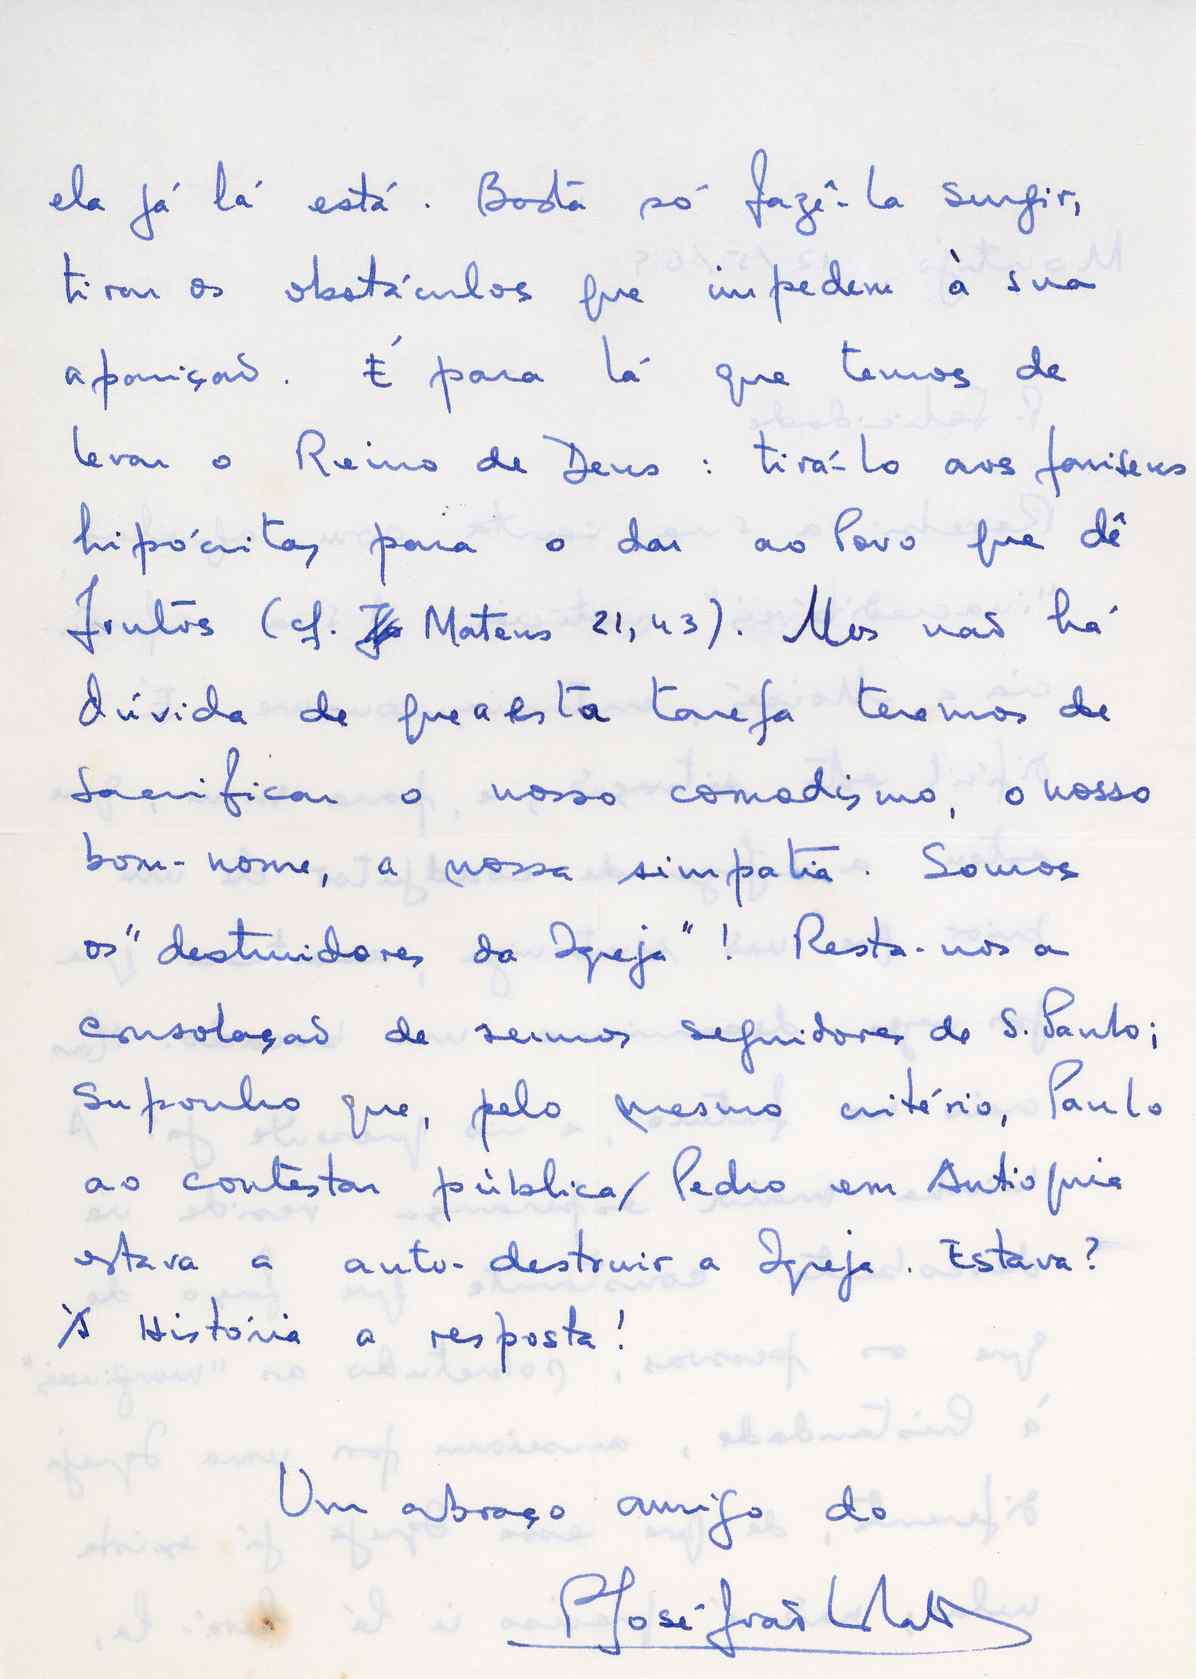 ela já lá está. Basta só fazê-la surgir,
tirar os obstáculos que impedem à sua
aparição. É para lá que temos de
levar o Reino de Deus: tirá-lo aos fariseus
hipócritas para o dar ao Povo que dê
frutos (cf. Mateus 21,43). Mas não há
dúvida de que a esta tarefa teremos de
sacrificar o nosso comodismo, o nosso
bom-nome, a nossa simpatia. Somos
os "destruidores da Igreja"! Resta-nos a
consolação de sermos seguidores de S. Paulo;
suponho que, pelo mesmo critério, Paulo
ao contestar pública/ Pedro em Antioquia
estava a auto-destruir a Igreja. Estava?
À História a resposta!
Um abraço amigo do
P. José João